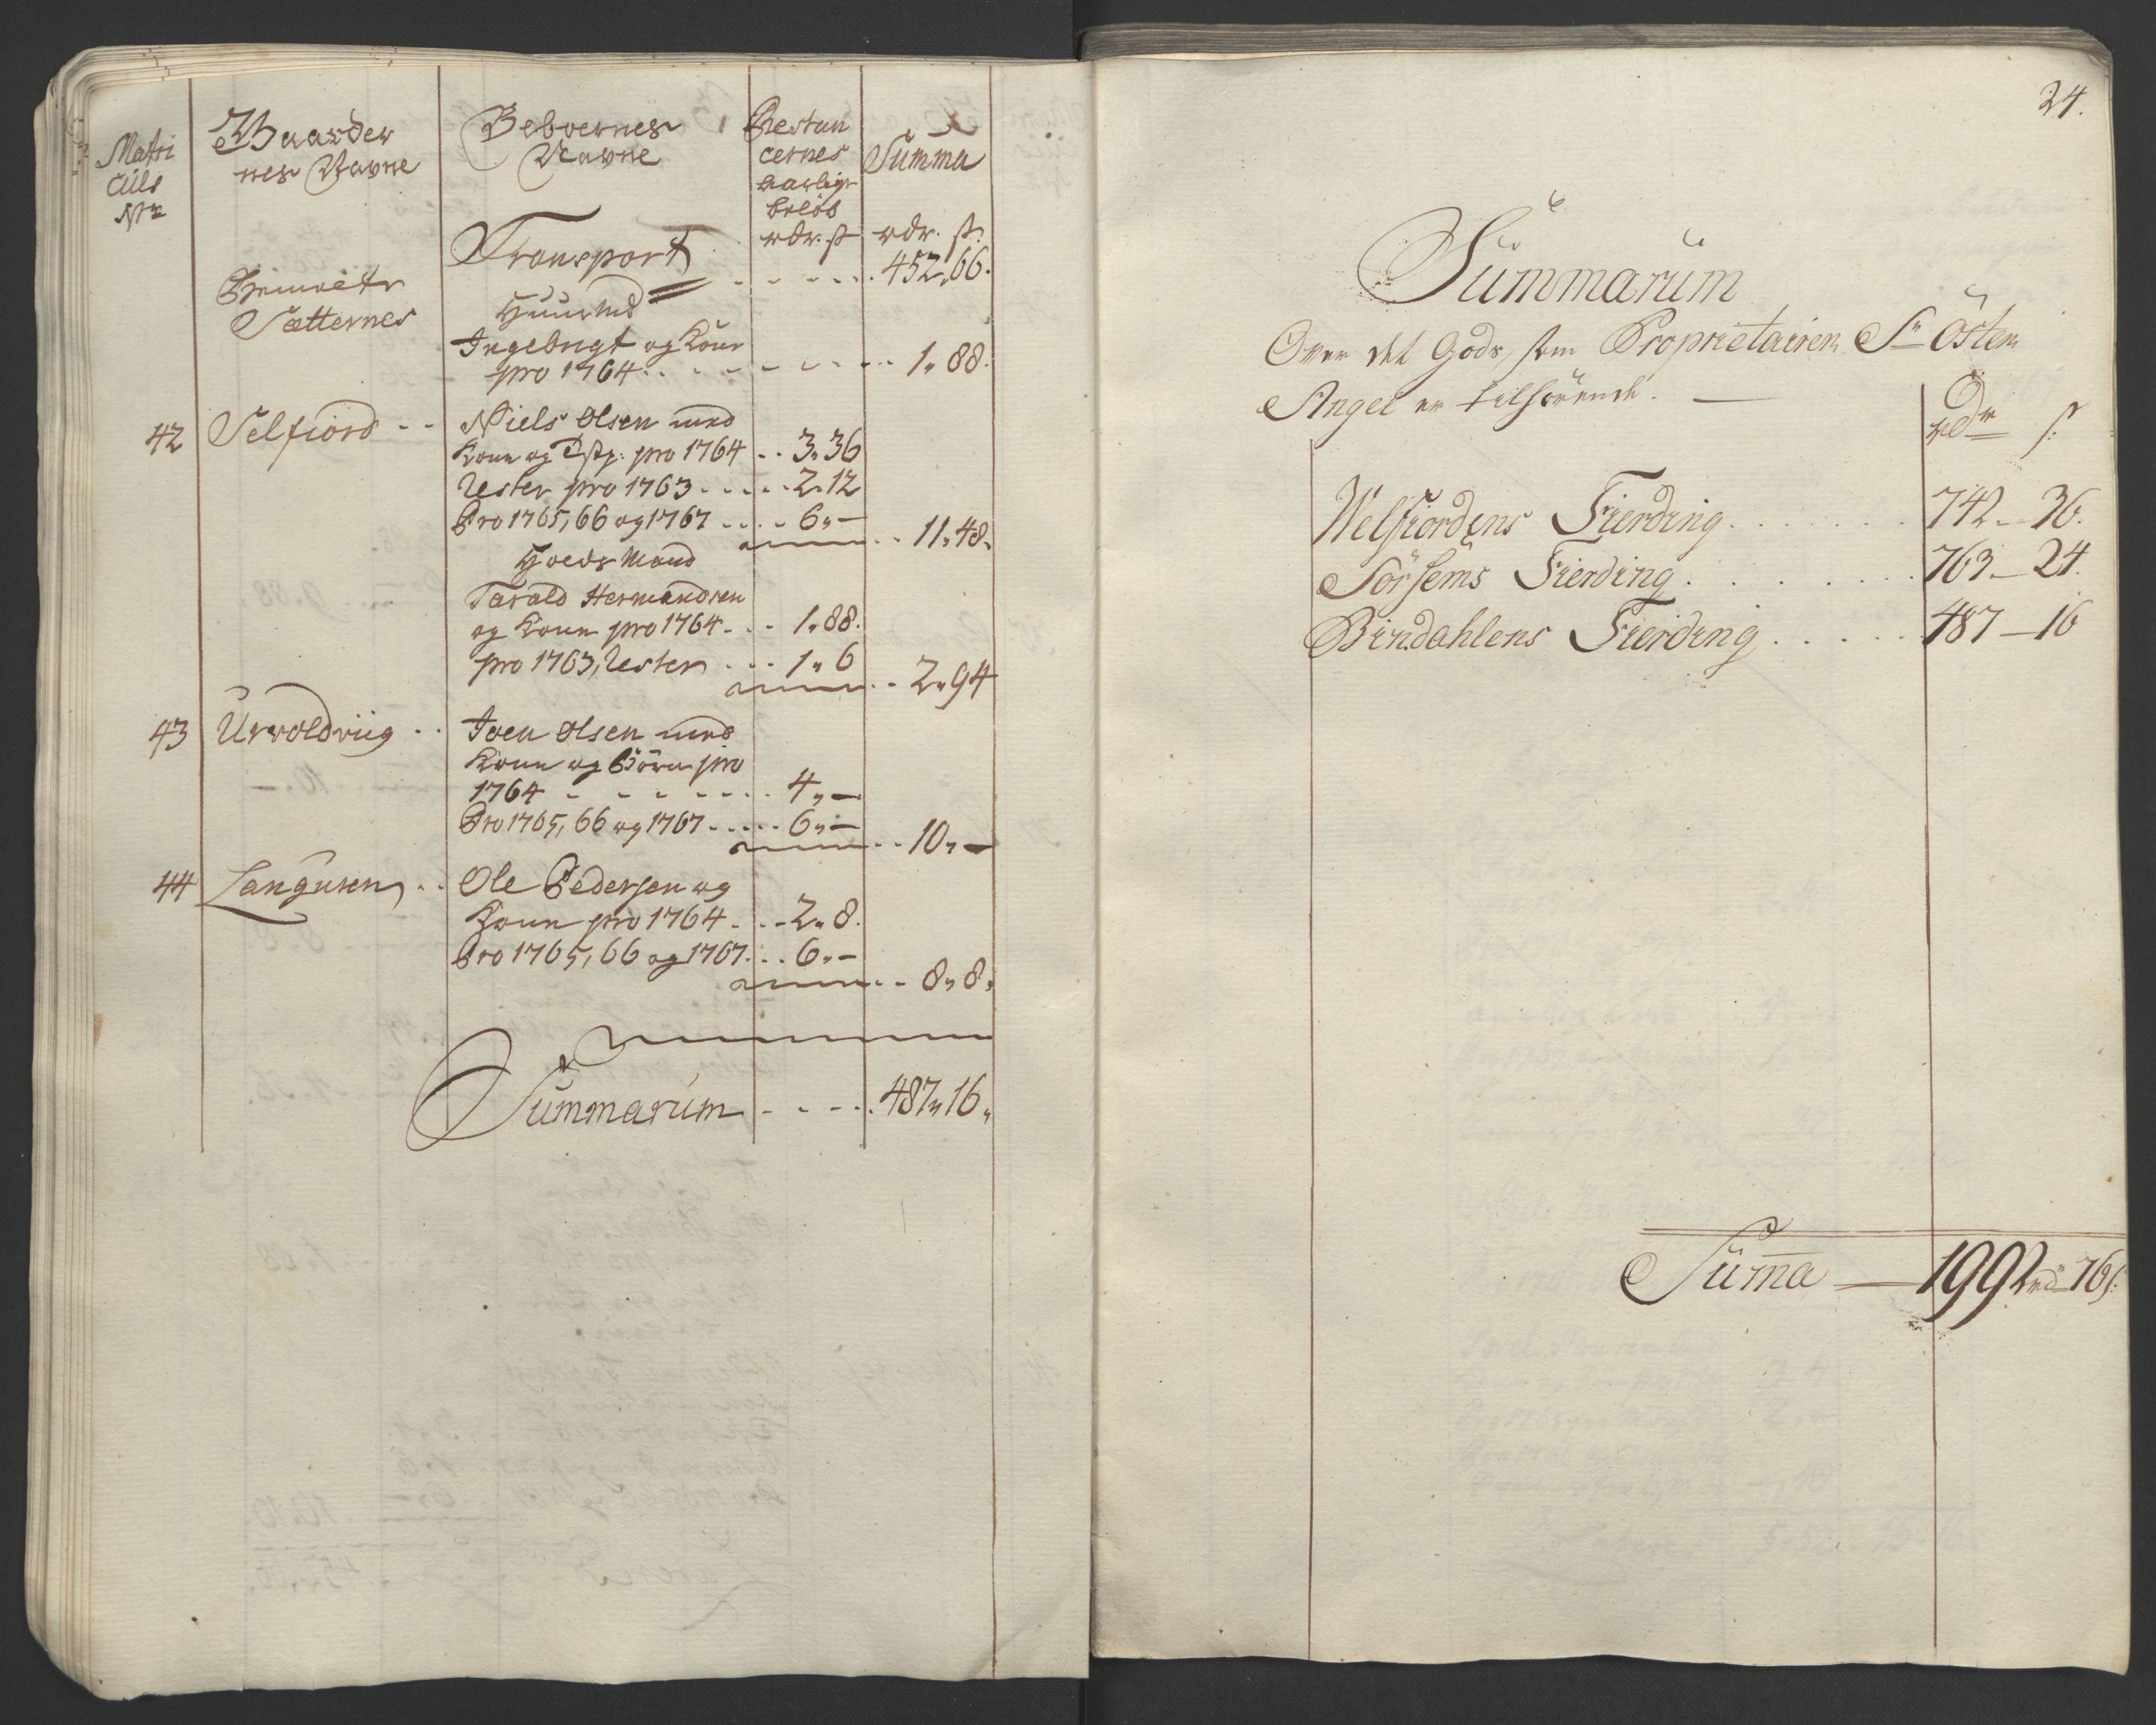 Matri
culs
No
Gaarder
nes Navne
Beboernes
Navne
Restan
cernes
aarlige
beløb
rdr. s
Summa
rdr. s.
Transport - - - - - 452,, 66.
Sætternes
Huusmd
Ingebrigt og Kone
pro 1764 - - - - - - 1,, 88.
42 Selfiord - - Niels Olsen med
Kone og pro 1764 - - 3,, 36
Rester pro 1763 - - - - 2,, 12
Pro 1765, 66 og 1767 - - - 6,, -
11,, 48,,
Hoeds Mand
Tarald Hermandsen
og Kone pro 1764 - - - 1,, 88.
pro 1763, Rester - - - 1,, 6
2,, 94
43 Urvoldviig - - Joen Olsen med
Kone og Börn pro
1764 - - - - - - 4,, -
Pro 1765, 66 og 1767 - - - - 6,, -
10,, -
44 Langusen - - Ole Pedersen og
Kone pro 1764 - - - 2,, 8.
Pro 1765, 66 og 1767 - - - 6,, -
8,, 8,,
Summarum - - - - 487,, 16,,
24.
Summarum
Over det Gods, som Proprietairen Sr Östen
Angel er tilhörende. —
rdr s:
Welfiordens Fierding . . . . . . 742 - 36.
Sörhems Fierding . . . . . . . 763 - 24.
Bindahlens Fierding . . . . . 487 - 16
Suma — 1992 rdr 76 s: